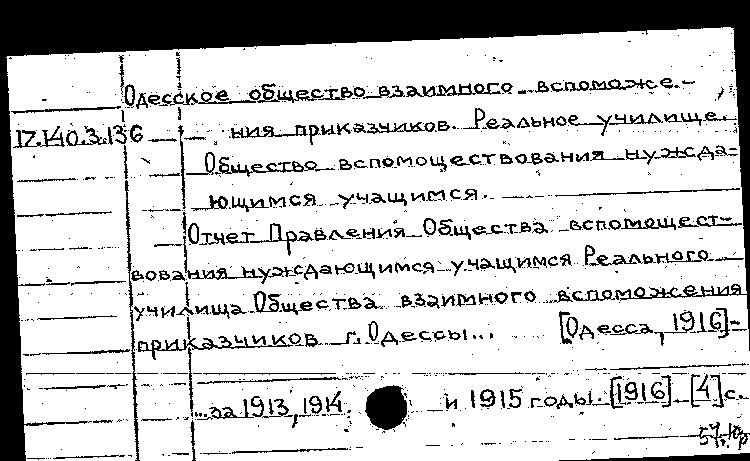 Одесское общество взаимного вспоможе-
17.140.3.136
ния приказчиков. Реальное училище.
Общество вспомоществования нужда-
ющимся учащимся.
Отчет Правления Общества вспомощест-
вования нуждающимся учащимся Реального
училища Общества взаимного вспоможения
приказчиков г. Одессы... [Одесса, 1916]-
...за 1913, 1914 и 1915 годы. [1916] [4] с.